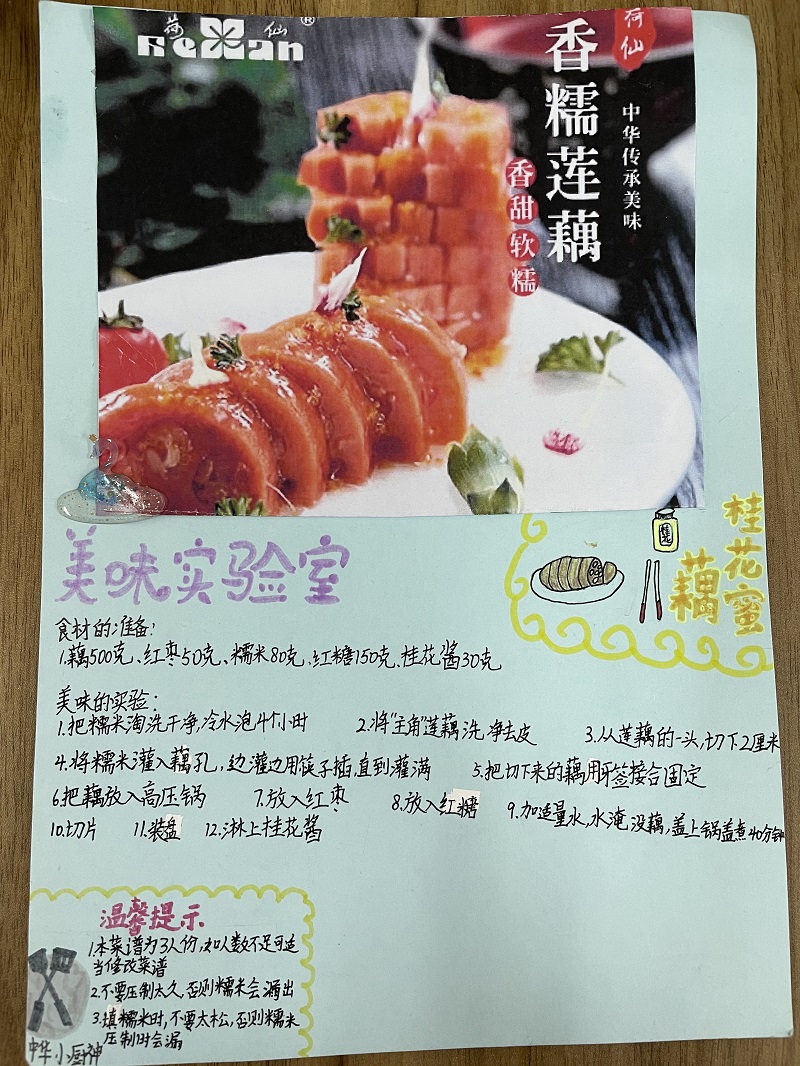 荷仙®
HeXan
荷仙
香糯莲藕
中华传承美味
香甜软糯
桂花蜜
藕
桂花
美味实验室
食材的准备:
1.藕500克、红枣50克、糯米80克、红糖150克、桂花酱30克
美味的实验:
1.把糯米淘洗干净,冷水泡4个小时 2.将"主角"莲藕洗净去皮 3.从莲藕的一头,切下2厘米
4.将糯米灌入藕孔,边灌边用筷子插,直到灌满 5.把切下来的藕用牙签接合固定
6.把藕放入高压锅 7.放入红枣 8.放入红糖 9.加适量水,水淹没藕,盖上锅盖煮40分钟
10.切片 11.装盘 12.淋上桂花酱
温馨提示
1.本菜谱为3人份,如人数不足可适
当修改菜谱
2.不要压制太久,否则糯米会漏出
3.填糯米时,不要太松,否则糯米
压制时会漏
中华小厨神